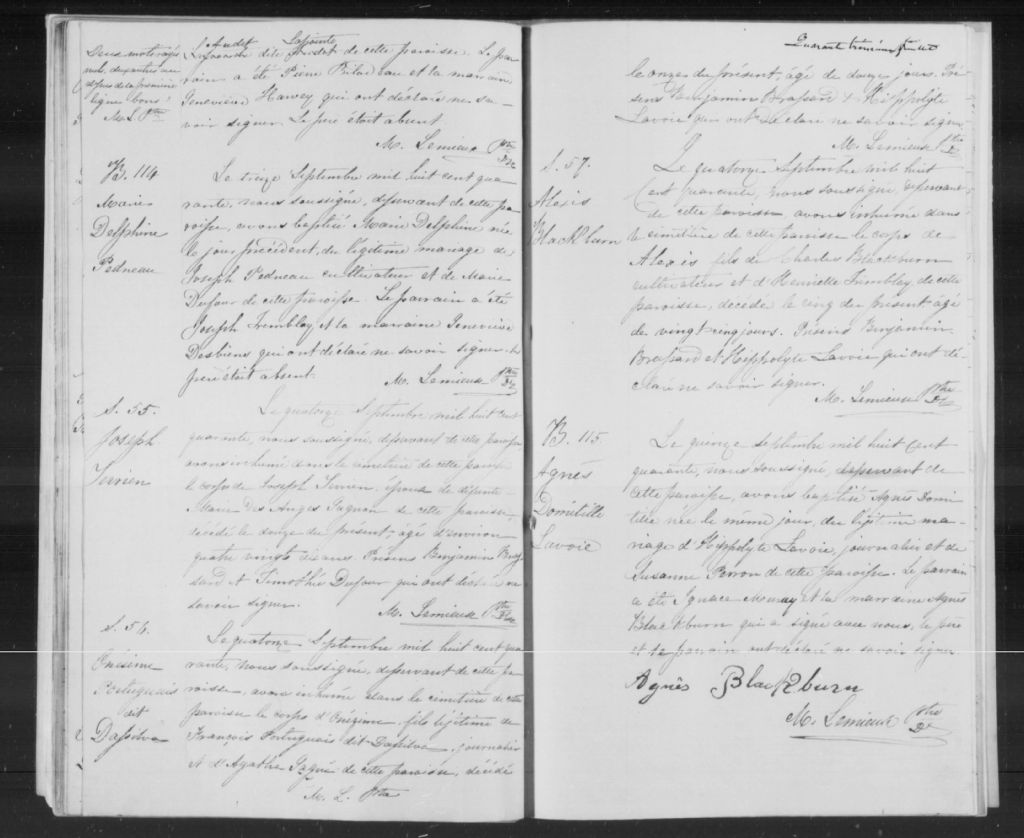 Deux mots rayés
nuls, deux autres au
dessus de la première
ligne bons
M. L. Ptre
Audet Lapointe
dite de cette paroisse. Le par
rain a été Pierre Bilodeau et la marraine
Geneviève Harvey qui ont déclaré ne sa-
voir signer. Le père était absent.
M. Lemieux Ptre
B. 114
Marie
Delphine
Pedneau
Le treize Septembre mil huit cent qua
rante, nous soussigné, desservant de cette pa
roisse, avons baptisé Marie Delphine née
le jour précédent, du légitime mariage de
Joseph Pedneau cultivateur et de Marie
Dufour de cette paroisse. Le parrain a été
Joseph Tremblay et la marraine Geneviève
Desbiens qui ont déclaré ne savoir signer. Le
père était absent.
M. Lemieux Ptre
S. 55.
Joseph
Terrien
Le quatorze Septembre mil huit cent
quarante, nous soussigné, desservant de cette paroisse
avons inhumé dans le cimetière de cette paroisse
le corps de Joseph Terrien, époux de défunte
Marie Des Anges Gagnon de cette paroisse,
décédé le douze du présent, âgé d'environ
quatre vingts dix ans. Présens Benjamin Bras
sard et Timothé Dufour qui ont déclaré ne
savoir signer.
M. Lemieux Ptre
S. 56.
Onésime
Portuguais
dit
Dassilva
Le quatorze Septembre mil huit cent qua
rante, nous soussigné, desservant de cette pa
roisse, avons inhumé dans le cimetière de cette
paroisse le corps d'Onézime, fils légitime de
François Portuguais dit Dasilva, journalier
et d'Agathe Gagné de cette paroisse, décédé
M. L. Ptre
Quarant troisième feuillet
le onze du présent, âgé de douze jours. Pré
sens Benjamin Brassard & Hippolyte
Lavoie qui ont déclaré ne savoir signer
M. Lemieux Ptre
S. 57.
Alexis
Blackburn
Le quatorze Septembre mil huit
Cent quarante, nous soussigné, desservant
de cette paroisse, avons inhumé dans
le cimetière de cette paroisse le corps de
Alexis fils de Charles Blackburn
cultivateur et d'Henriette Tremblay, de cette
paroisse, décédé le cinq du présent âgé
de vingt cinq jours. Présens Benjamin
Brassard et Hippolyte Lavoie qui ont dé-
claré ne savoir signer.
M. Lemieux Ptre
B. 115
Agnès
Domitille
Lavoie
Le quinze septembre mil huit cent
quarante, nous soussigné, desservant de
cette paroisse, avons baptisé Agnès Domi
tille née le même jour, du légitime ma-
riage d'Hippolyte Lavoie, journalier et de
Susanne Perron de cette paroisse. Le parrain
a été Ignace Murray et la marraine Agnès
Blackburn qui a signé avec nous, le père
et le parrain ont déclaré ne savoir signer.
Agnès Blackburn
M. Lemieux Ptre